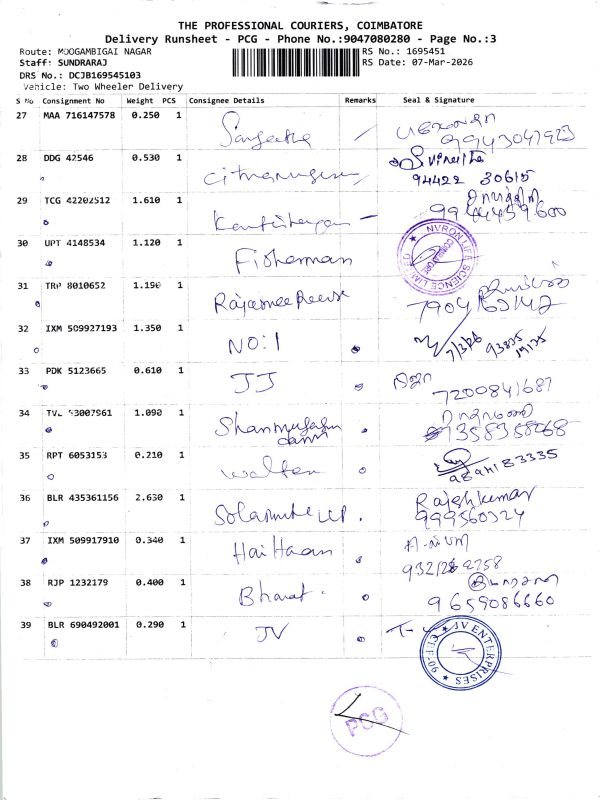 THE PROFESSIONAL COURIERS, COIMBATORE
Delivery Runsheet - PCG - Phone No.:9047080280 - Page No.:3
Route: MOOGAMBIGAI NAGAR
RS No.: 1695451
Staff: SUNDRARAJ
RS Date: 07-Mar-2026
DRS No.: DCJB169545103
Vehicle: Two Wheeler Delivery
S No Consignment No Weight PCS Consignee Details Remarks Seal & Signature
27 MAA 716147578 0.250 1 Sangeetha
9943047923
28 DDG 42546 0.530 1
94422 30615
29 TCG 42202512 1.610 1
9944459600
30 UPT 4148534 1.120 1 Fisherman
NVRON LIFE SCIENCE LIMITED
COIMBATORE
31 TRP 8010652 1.190 1
7904162142
32 IXM 509927193 1.350 1 NO:1
7/3/26
33 PDK 5123665 0.610 1 JJ
7200841687
34 TVL 53007961 1.090 1 Shanmugam
9358358068
35 RPT 6053153 0.210 1 Walter
36 BLR 435361156 2.630 1 Rajeshkumar
999560324
37 IXM 509917910 0.340 1
38 RJP 1232179 0.400 1 Bharat
9659086660
39 BLR 690492001 0.290 1 JV
JV ENTERPRISES
PCG